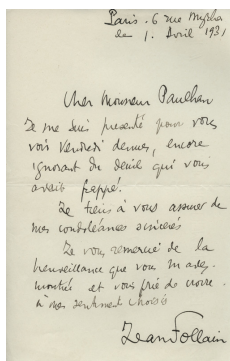 Paris. 6 rue Myrha
le 1. Avril 1931
Cher Monsieur Paulhan
Je me suis presenté pour vous
voir Vendredi dernier, encore
ignorant du deuil qui vous
avait frappé.
Je tiens à vous assurer de
mes condoléances sincères
Je vous remercie de la
bienveillance que vous m'avez
montrée et vous prie de croire
à mes sentiments choisis
Jean Follain